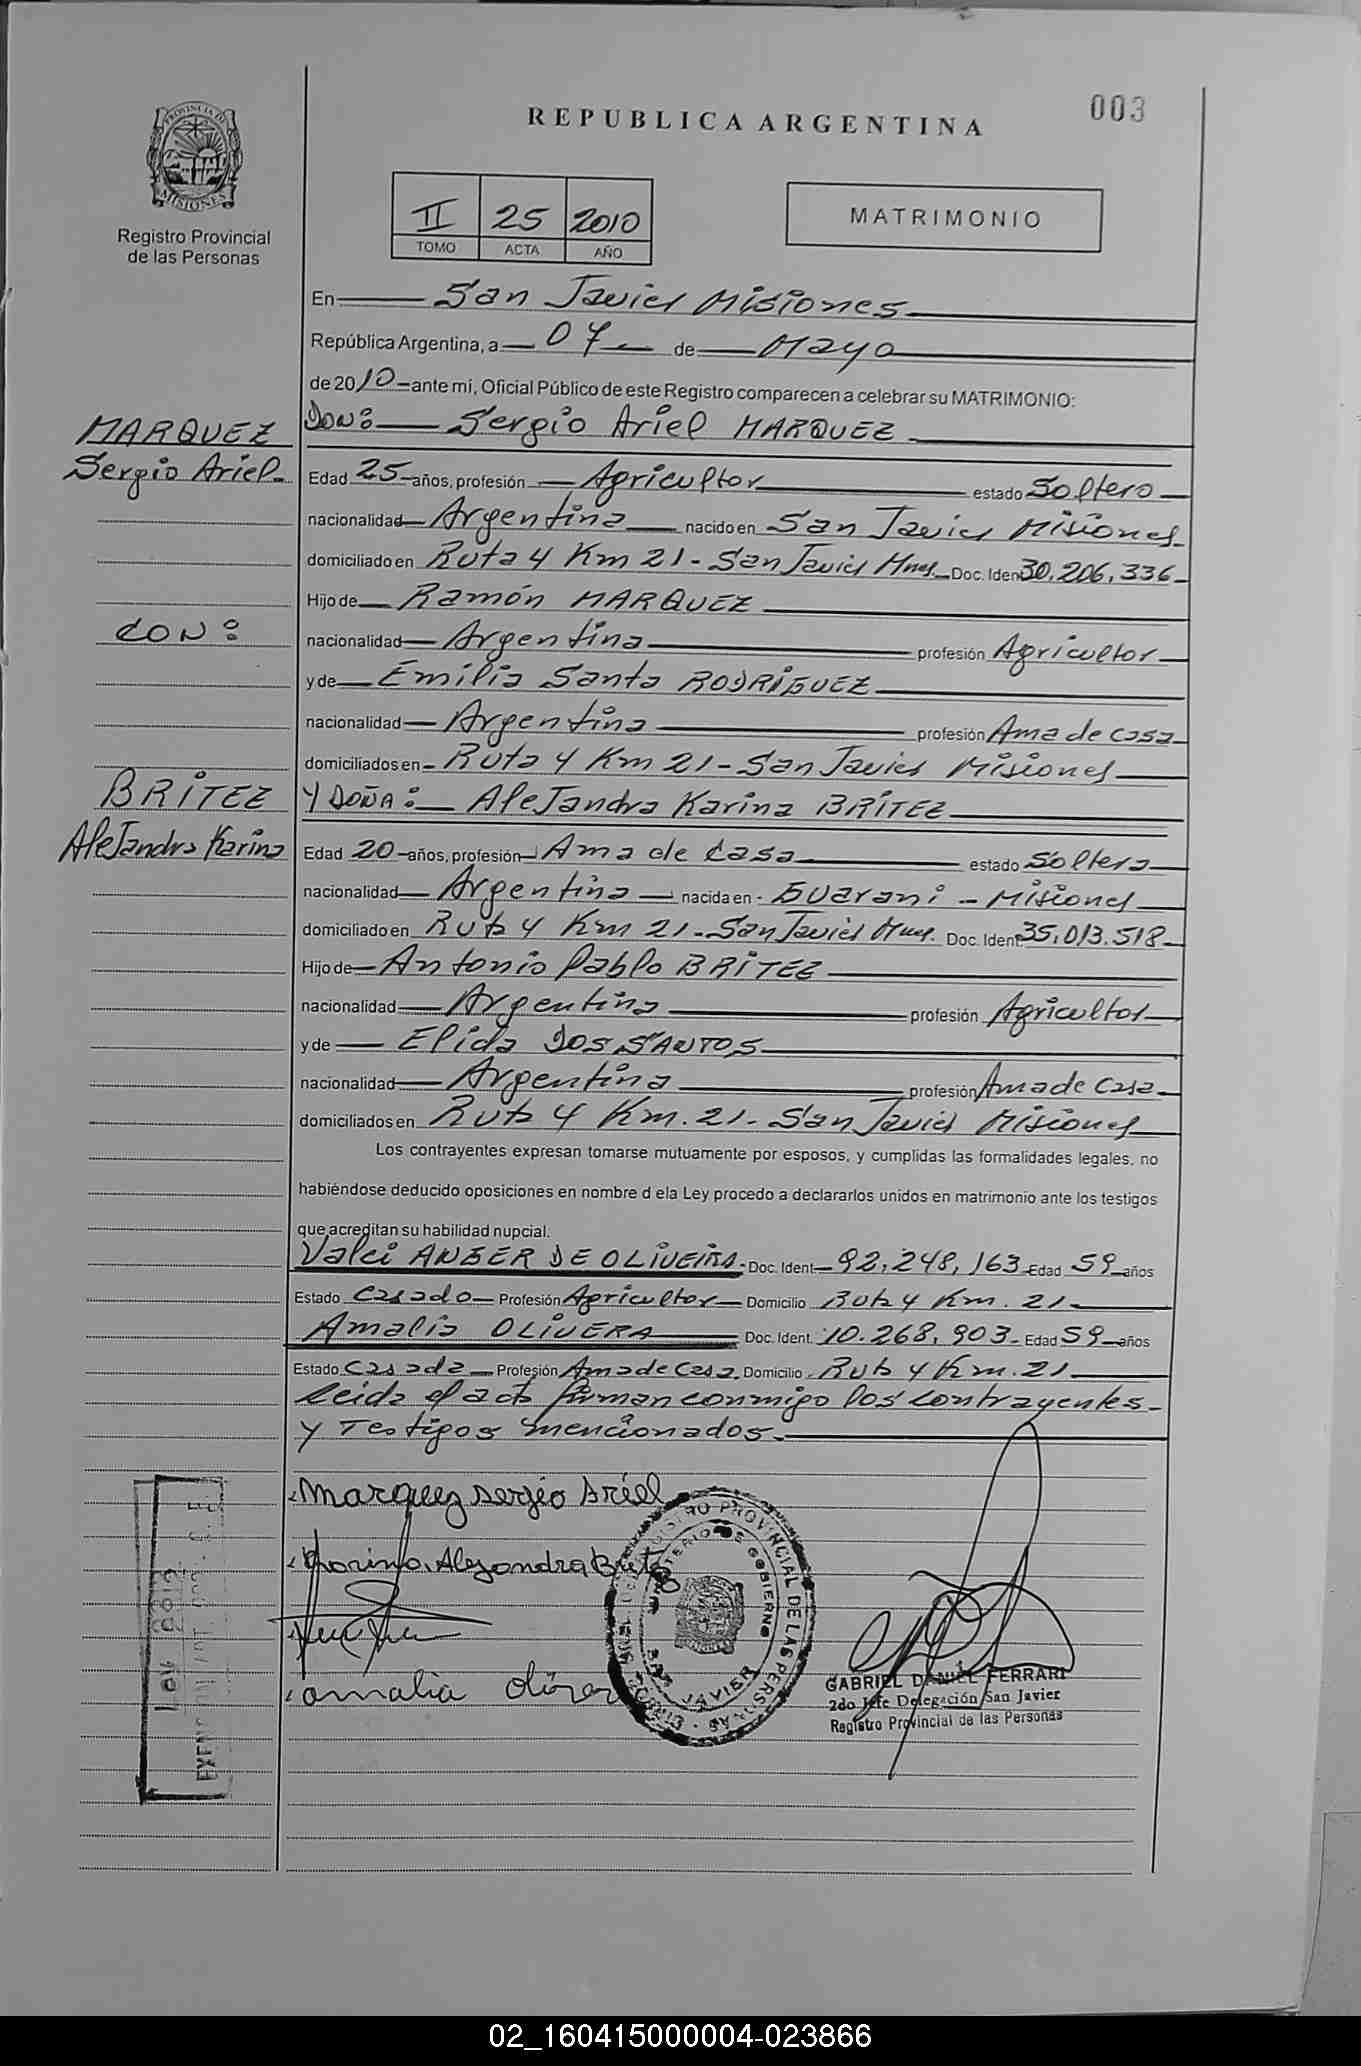 003
REPUBLICA ARGENTINA
PROVINCIA DE
MISIONES
Registro Provincial
de las Personas
II 25 2010
TOMO ACTA AÑO
MATRIMONIO
En San Javier Misiones
República Argentina, a 07 de Mayo
de 2010 ante mi, Oficial Público de este Registro comparecen a celebrar su MATRIMONIO:
MARQUEZ
DON: Sergio Ariel MARQUEZ
Sergio Ariel
Edad 25 años, profesión Agricultor estado Soltero
nacionalidad Argentina nacido en San Javier Misiones
domiciliado en Ruta 4 Km 21 - San Javier Mnes. Doc. Iden 30.206.336
Hijo de Ramón MARQUEZ
CON:
nacionalidad Argentina profesión Agricultor
y de Emilia Santa RODRIGUEZ
nacionalidad Argentina profesión Ama de casa
domiciliados en Ruta 4 Km 21 - San Javier Misiones
BRITEZ
Y DOÑA: AleJandra Karina BRITEZ
AleJandra Karina
Edad 20 años, profesión Ama de Casa estado Soltera
nacionalidad Argentina nacida en - Guarani - Misiones
domiciliado en Ruta 4 Km 21 - San Javier Mnes. Doc. Ident 35.013.518
Hijo de Antonio Pablo BRITEZ
nacionalidad Argentina profesión Agricultor
y de Elida DOS SANTOS
nacionalidad Argentina profesión Ama de Casa
domiciliados en Ruta 4 Km. 21 - San Javier Misiones
Los contrayentes expresan tomarse mutuamente por esposos, y cumplidas las formalidades legales, no
habiéndose deducido oposiciones en nombre d ela Ley procedo a declararlos unidos en matrimonio ante los testigos
que acreditan su habilidad nupcial.
Valci DE OLIVEIRA. Doc. Ident. 92.248.163 Edad 59 años
Estado Casado Profesión Agricultor Domicilio Ruta 4 Km. 21
Amalia OLIVERA Doc. Ident. 10.268.903 Edad 59 años
Estado Casada Profesión Ama de Casa. Domicilio Ruta 4 Km. 21
Leida el acta firman conmigo los contrayentes
y Testigos mencionados.
Marquez Sergio Ariel
Karina Alejandra Britez
amalia
REGISTRO PROVINCIAL DE LAS PERSONAS
MINISTERIO DE GOBIERNO
SAN JAVIER
GABRIEL DANIEL FERRARI
2do Jefe Delegación San Javier
Registro Provincial de las Personas
02_160415000004-023866